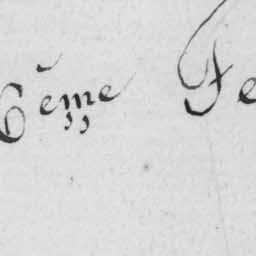 6ème Fe